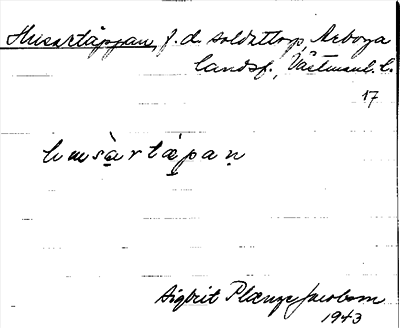 Husartäppan, f. d. soldattorp, Arboga
landsf., Västmanl. l.
17
husàrtä̀pan
Sigbrit Plænge Jacobson
1943